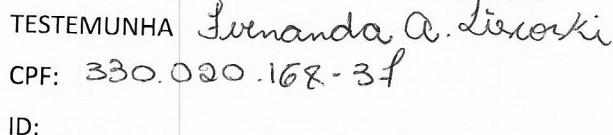 TESTEMUNHA Fernanda A. Liscoski
CPF: 330.020.168-37
ID: